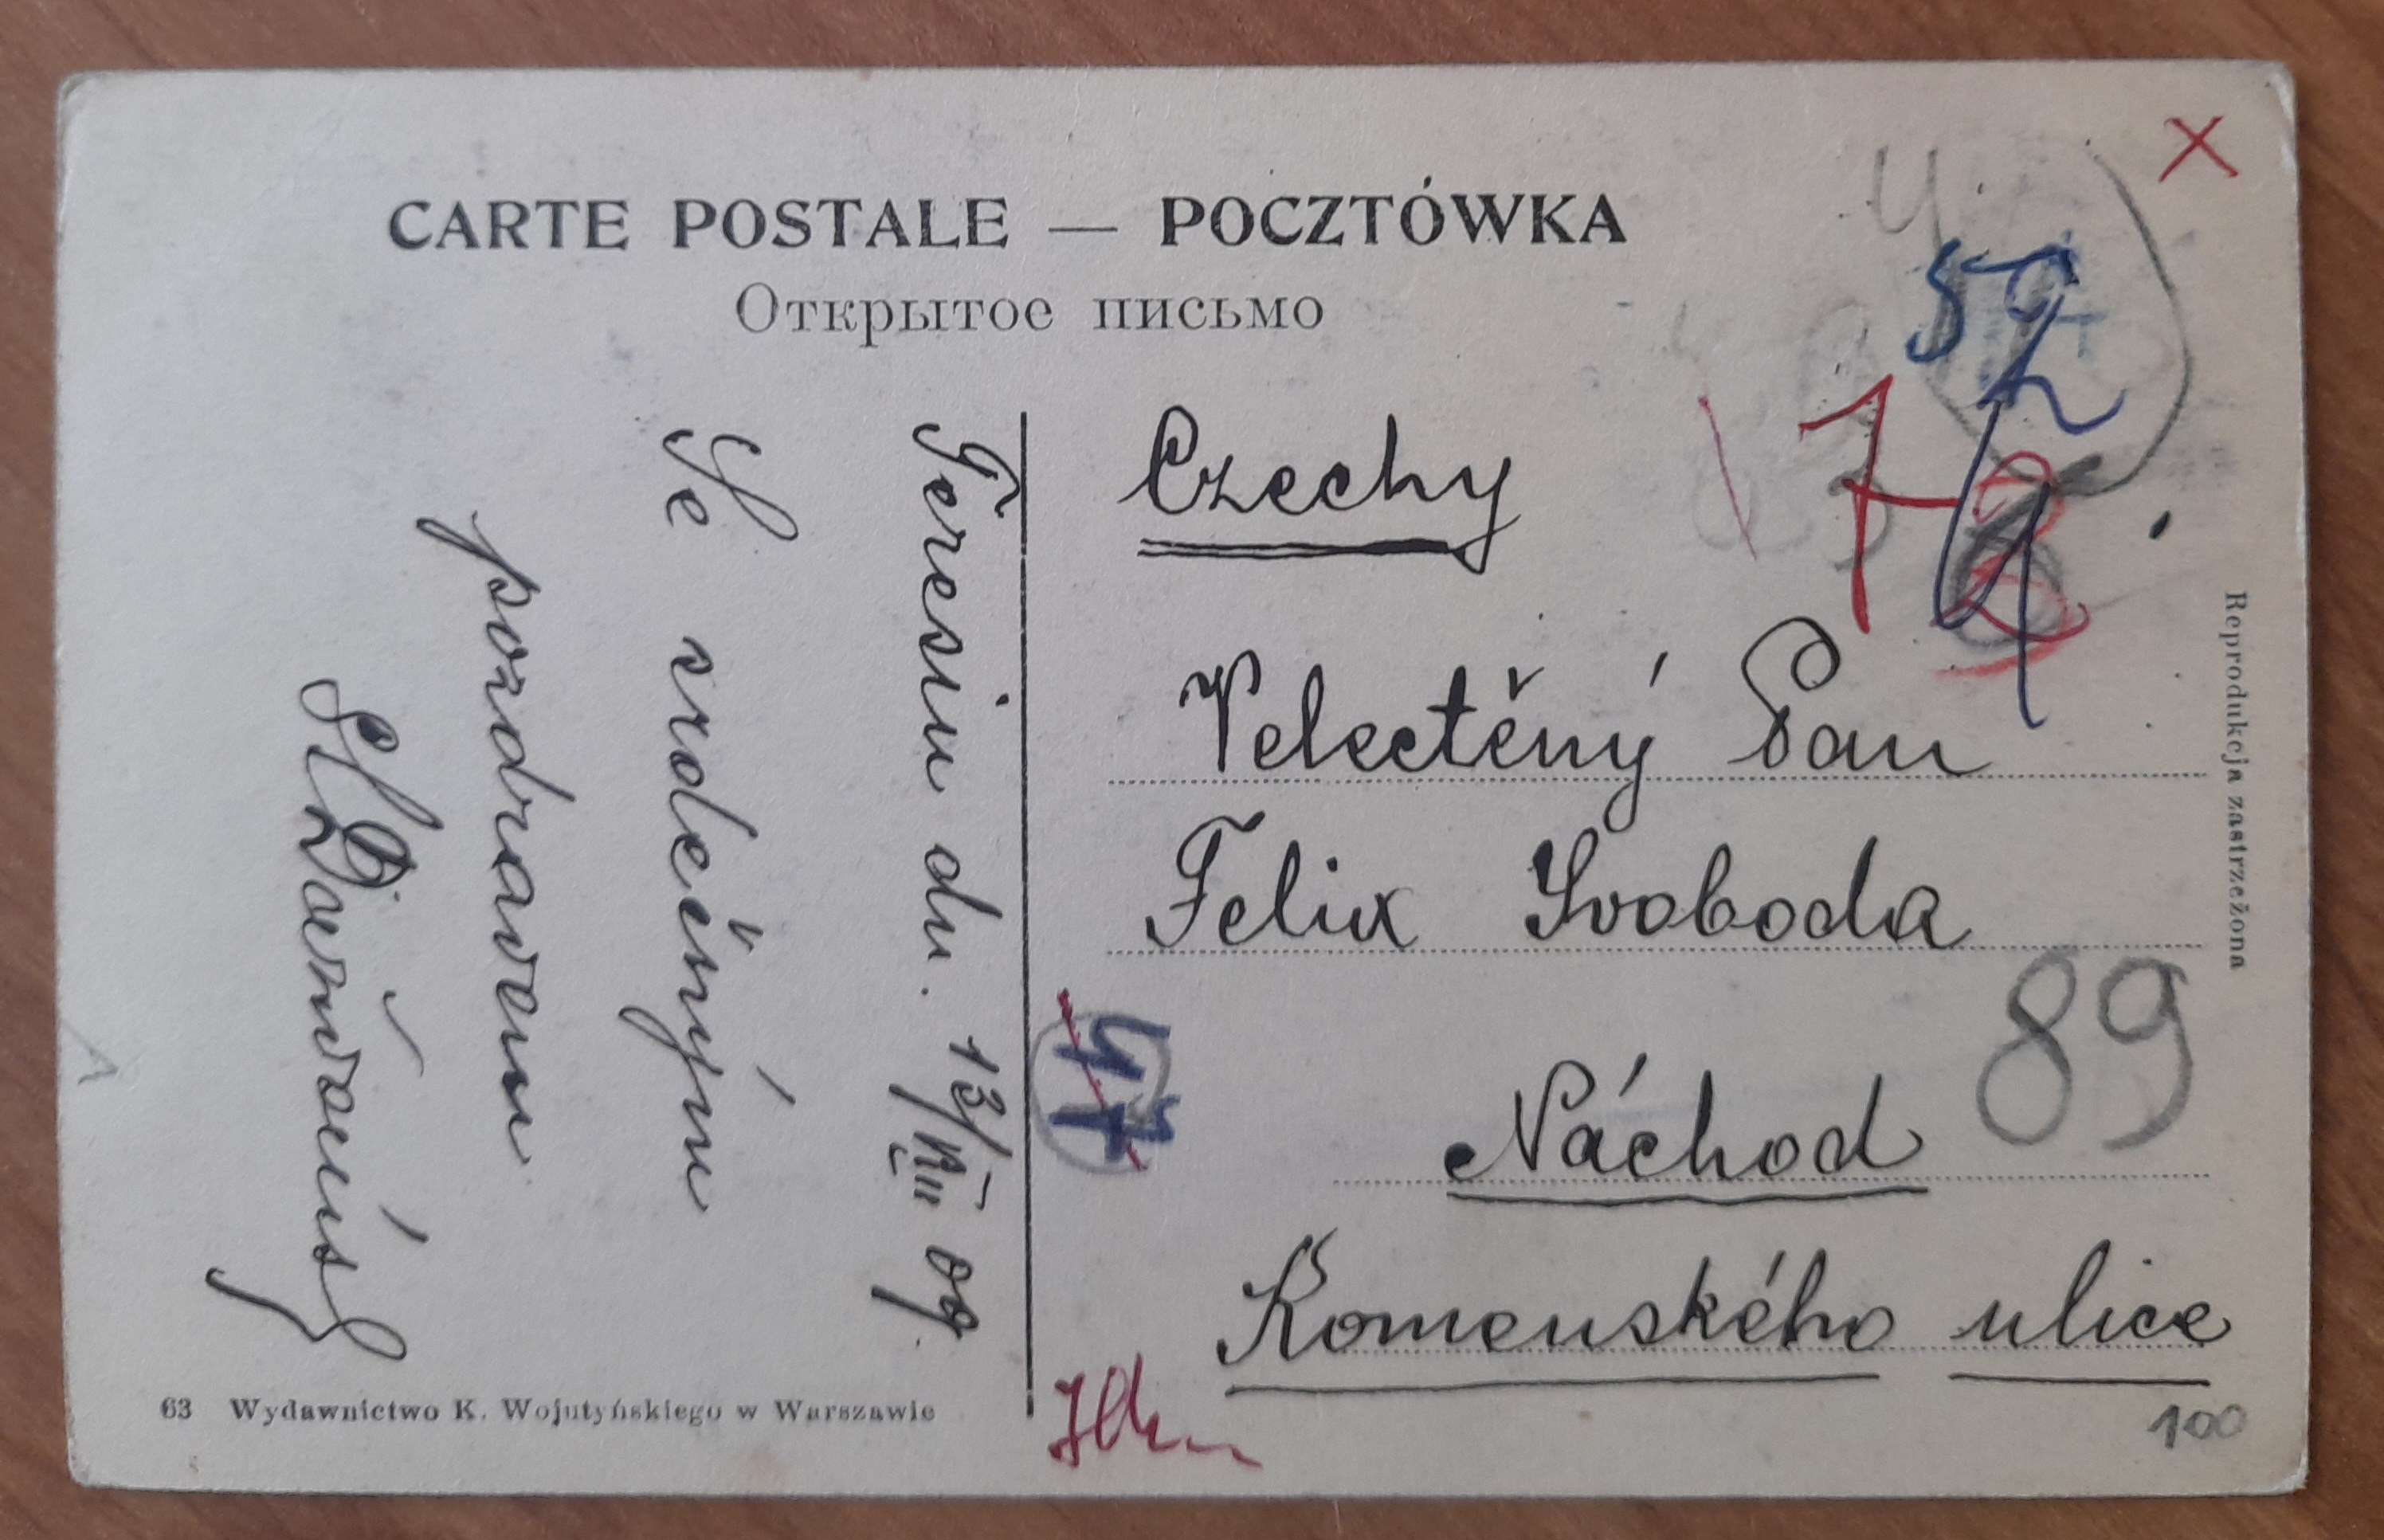 CARTE POSTALE — POCZTÓWKA
Открытое письмо
Teresin du. 13/VIII 09.
Se srdečným
pozdravem
Czechy
Velectěný Pan
Felix Svoboda
Náchod
Komenského ulice
Reprodukcja zastrzeżona
63 Wydawnictwo K. Wojutyńskiego w Warszawie
X
59
78
47
89
100